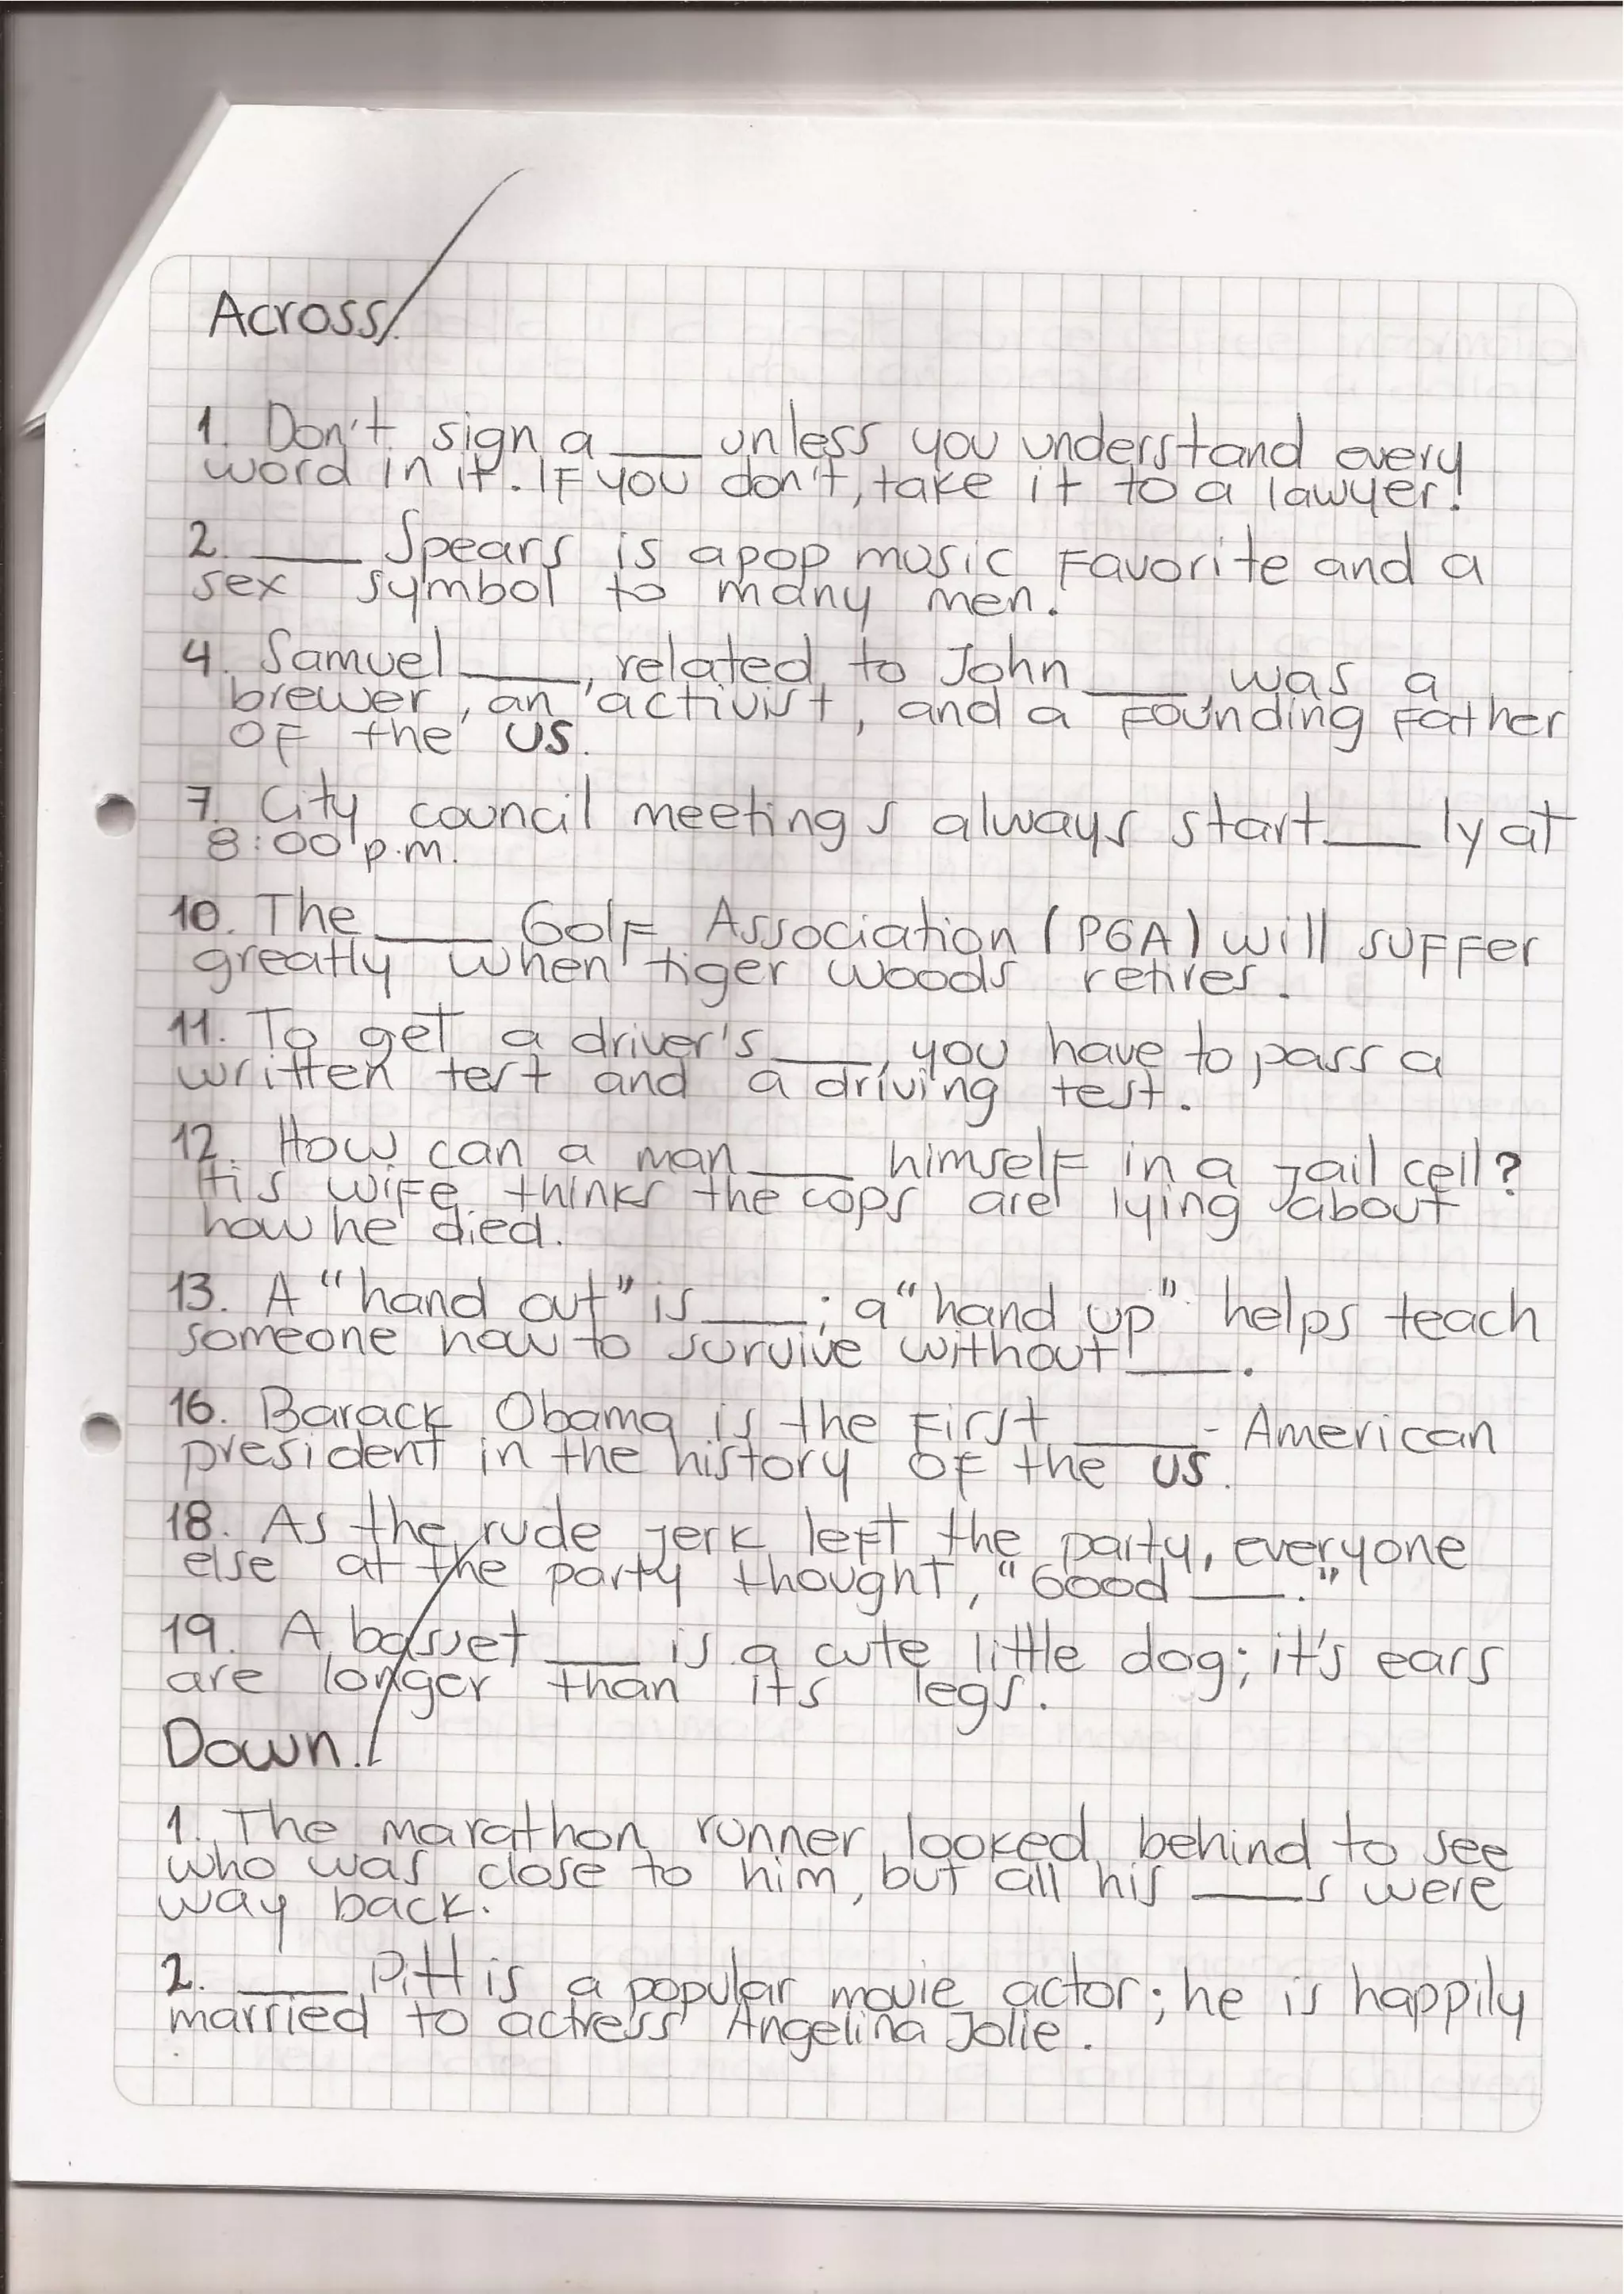 Across
1. Don't sign a ____ unless you understand every
word in it. If you don't, take it to a lawyer!
2. ____ Spears is a pop music favorite and a
sex symbol to many men.
4. Samuel ____, related to John ____, was a
brewer, an activist, and a founding father
of the US.
7. City council meetings always start ____ ly at
8:00 p.m.
10. The ____ Golf Association (PGA) will suffer
greatly when tiger woods retires.
11. To get a driver's ____, you have to pass a
written test and a driving test.
12. How can a man ____ himself in a jail cell?
His wife thinks the cops are lying about
how he died.
13. A "hand out" is ____; a "hand up" helps teach
someone how to survive without ____.
16. Barack Obama is the first ____-American
president in the history of the US.
18. As the rude jerk left the party, everyone
else at the party thought, "Good ____."
19. A basset ____ is a cute little dog; it's ears
are longer than its legs.
Down.
1. The marathon runner looked behind to see
who was close to him, but all his ____s were
way back.
2. ____ Pitt is a popular movie actor; he is happily
married to actress Angelina Jolie.